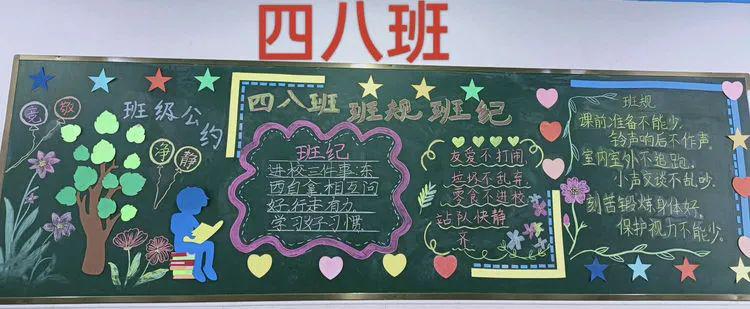 四八班
竞
敬
净
静
班级公约
四八班 班规班纪
班纪
进校三件事:东
西自拿 相互问
好.行走有力.
学习好习惯.
友爱不打闹
垃圾不乱弃
零食不进校
站队快静
齐
班规
课前准备不能少.
铃声响后不作声.
室内室外不追跑.
小声交谈不乱吵.
刻苦锻炼身体好.
保护视力不能少.